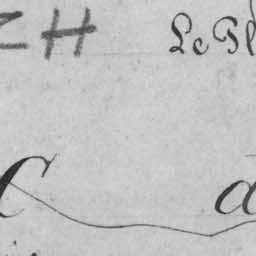 ZH
Le Pl
C a